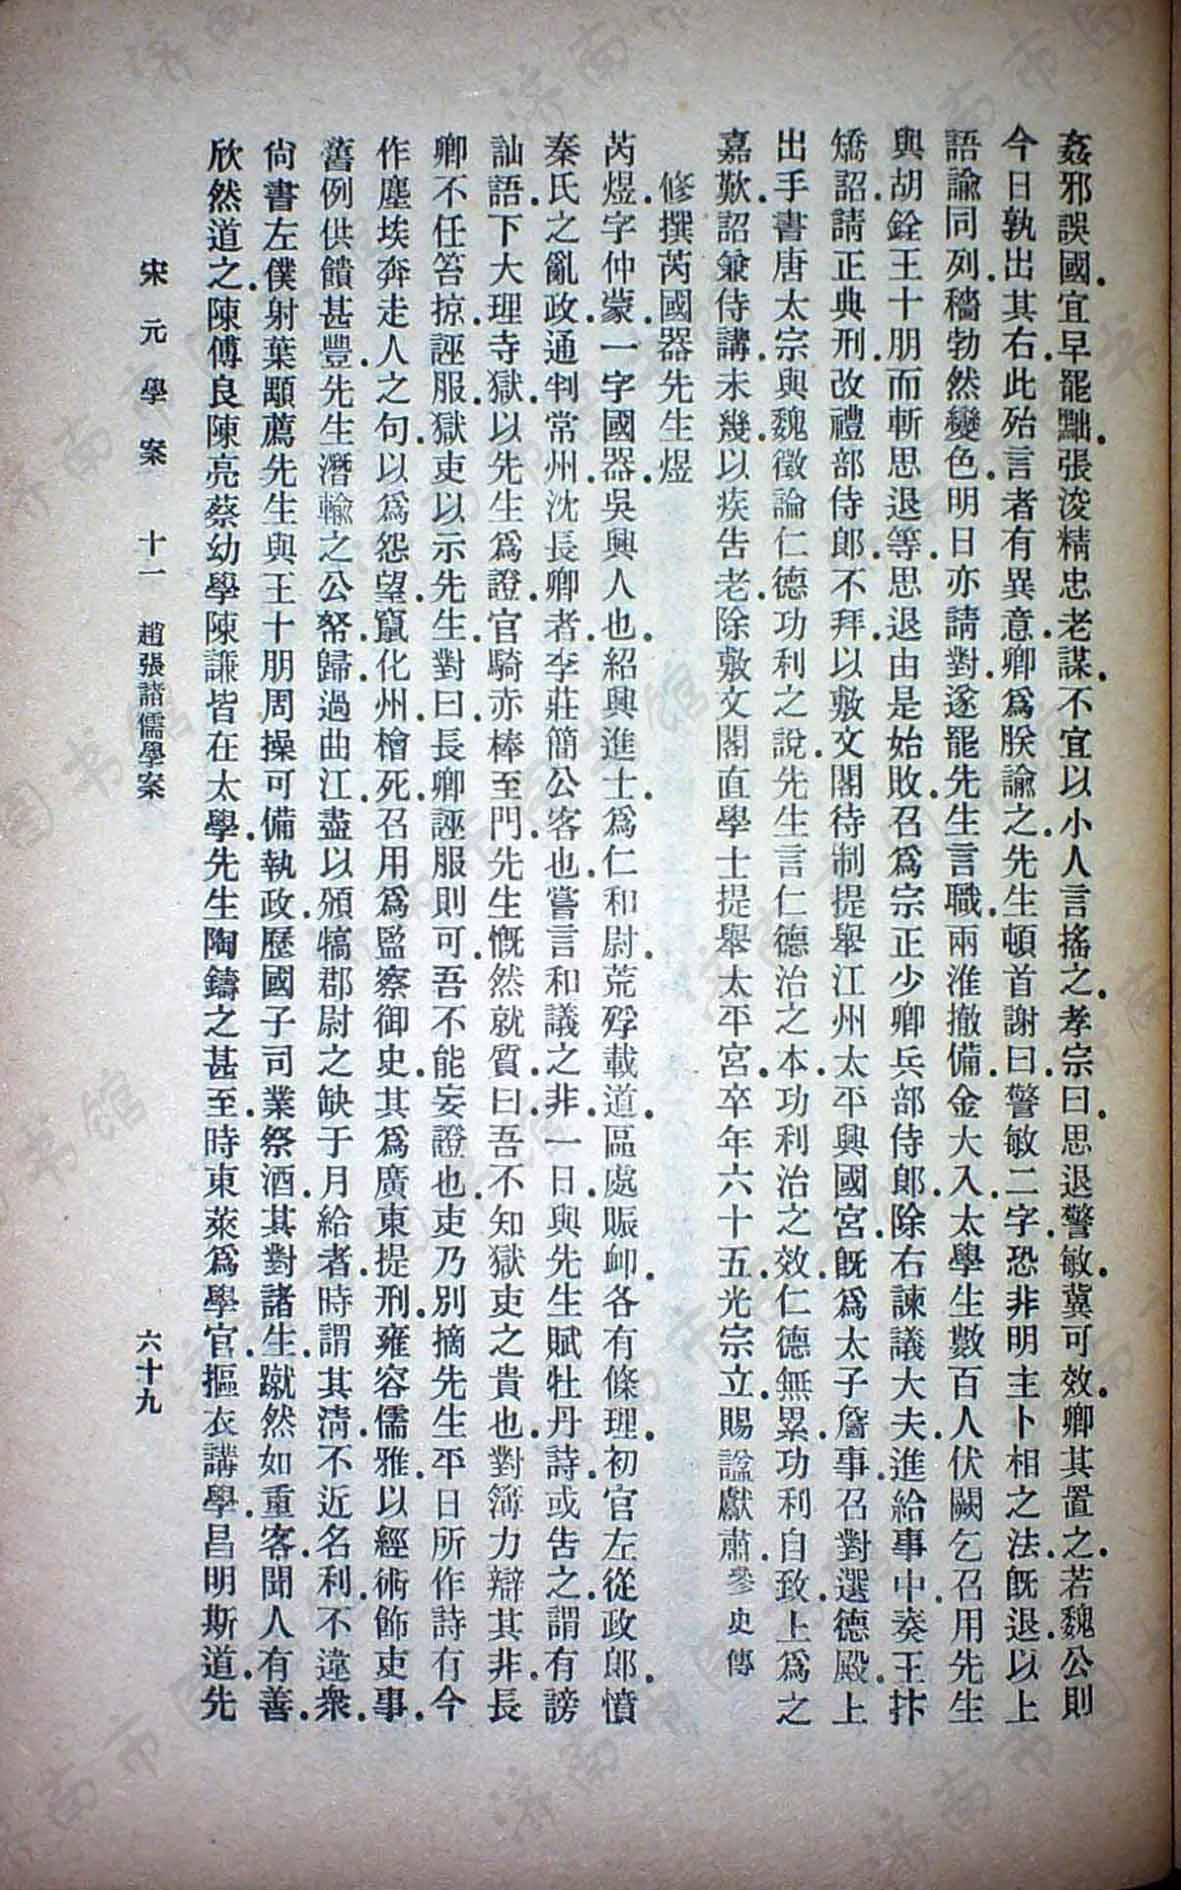 姦邪誤國．宜早罷黜．張浚精忠老謀．不宜以小人言搖之．孝宗曰．思退警敏．冀可效．卿其置之．若魏公則
今日孰出其右．此殆言者有異意．卿爲朕諭之．先生頓首謝曰．警敏二字．恐非明主卜相之法．既退．以上
語諭同列．穡勃然變色．明日亦請對．遂罷先生言職．兩淮撤備．金大入．太學生數百人伏闕乞召用先生
與胡銓王十朋而斬思退等．思退由是始敗．召爲宗正少卿兵部侍郎．除右諫議大夫．進給事中．奏王抃
矯詔．請正典刑．改禮部侍郎．不拜．以敷文閣待制提舉江州太平興國宮．既爲太子詹事．召對選德殿．上
出手書唐太宗與魏徵論仁德功利之說．先生言仁德治之本．功利治之效．仁德無累．功利自致．上爲之
嘉歎．詔兼侍講．未幾．以疾告老．除敷文閣直學士提舉太平宮．卒年六十五．光宗立．賜諡獻肅．參史傳
修撰芮國器先生煜
芮煜．字仲蒙．一字國器．吳興人也．紹興進士．爲仁和尉．荒殍載道．區處賑卹．各有條理．初官左從政郎．憤
秦氏之亂政．通判常州．沈長卿者．李莊簡公客也．嘗言和議之非．一日．與先生賦牡丹詩．或告之．謂有謗
訕語．下大理寺獄．以先生爲證．官騎赤棒至門．先生慨然就質曰．吾不知獄吏之貴也．對簿力辯其非．長
卿不任笞掠．誣服．獄吏以示先生．對曰．長卿誣服則可．吾不能妄證也．吏乃別摘先生平日所作詩有今
作塵埃奔走人之句．以爲怨望．竄化州．檜死．召用爲監察御史．其爲廣東提刑．雍容儒雅．以經術飾吏事．
舊例供饋甚豐．先生潛輸之公帑．歸過曲江．盡以頒犒郡尉之缺于月給者．時謂其清．不近名利．不違衆．
尚書左僕射葉顒薦先生與王十朋周操可備執政．歷國子司業祭酒．其對諸生．蹴然如重客．聞人有善．
欣然道之．陳傅良陳亮蔡幼學陳謙皆在太學．先生陶鑄之甚至．時東萊爲學官．摳衣講學．昌明斯道．先
宋元學案 十一 趙張諸儒學案 六十九